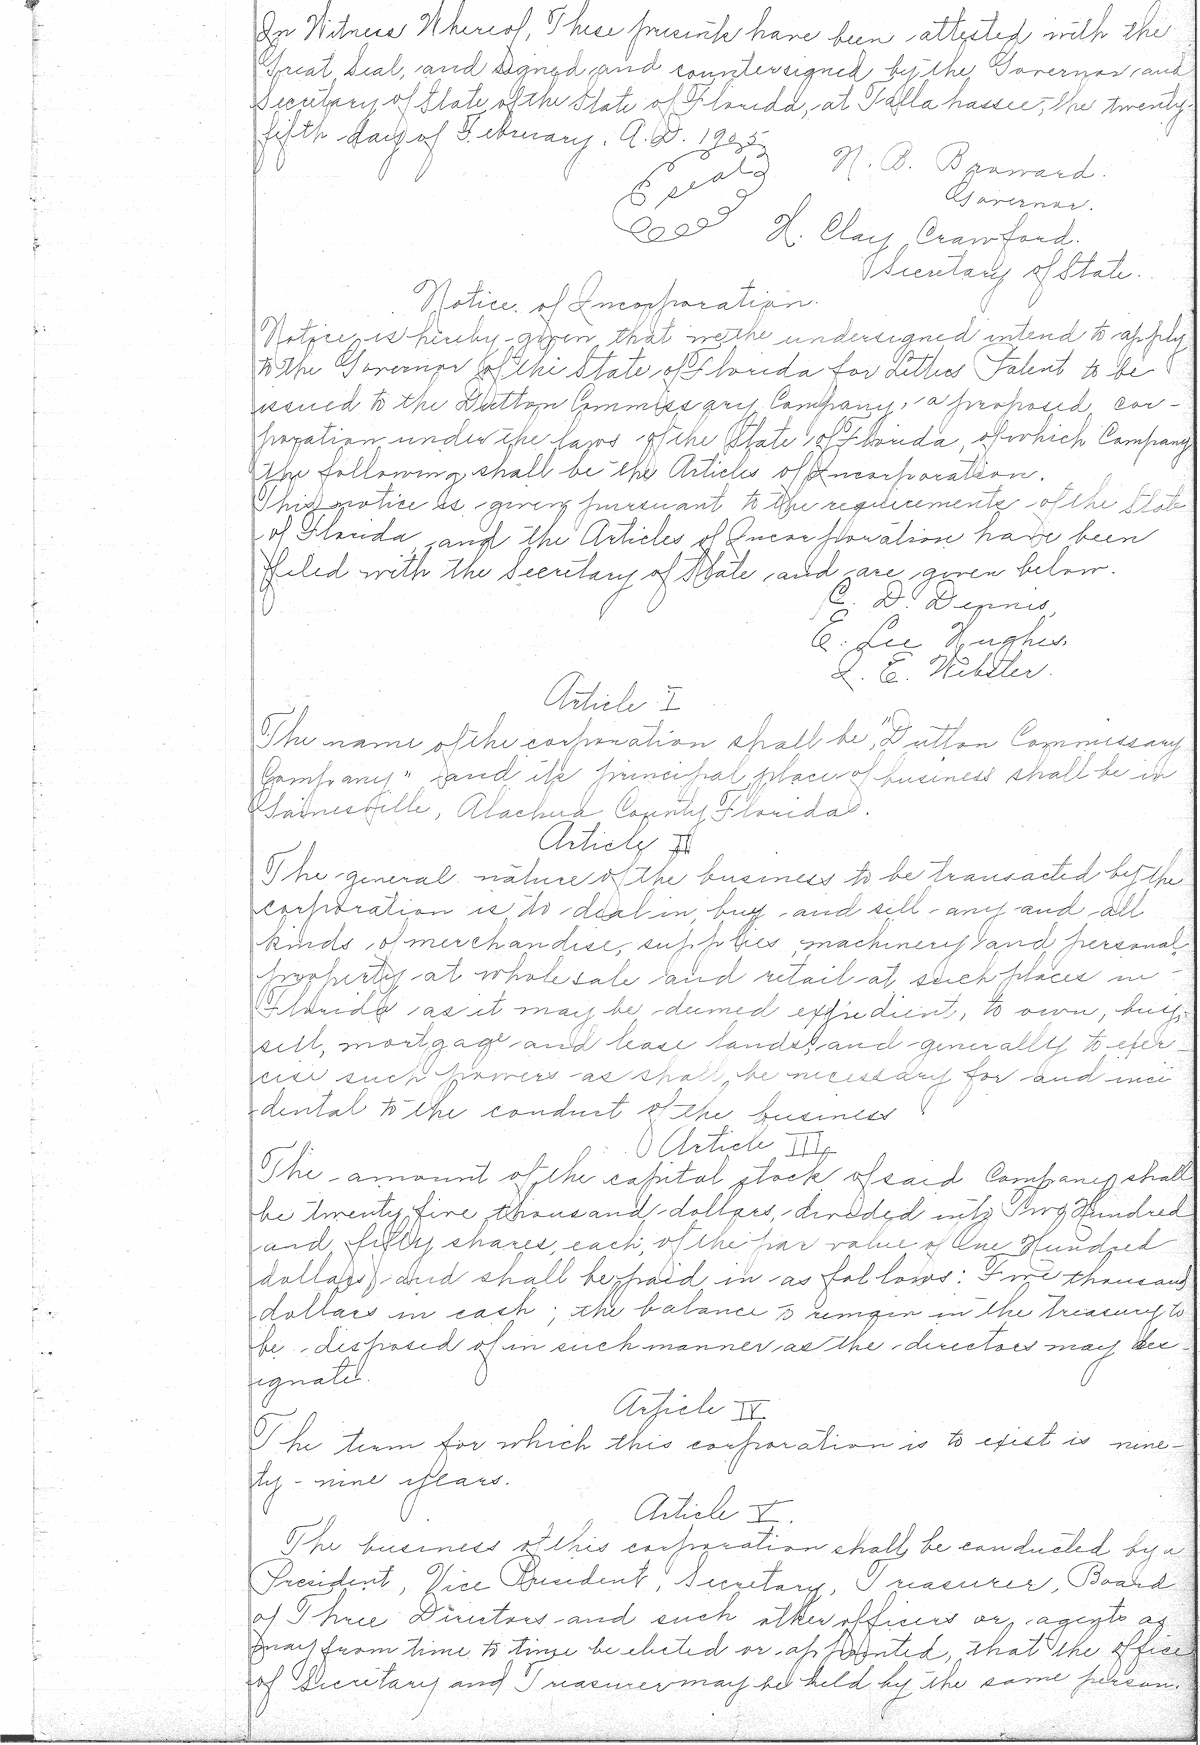 In Witness Whereof, These presents have been attested with the
Great Seal, and signed and countersigned by the Governor and
Secretary of State, of the State of Florida, at Tallahassee, the twenty-
fifth day of February. A.D. 1905.
Seal
N. B. Broward.
Governor.
H. Clay Crawford.
Secretary of State.
Notice of Incorporation.
Notice is hereby given that we the undersigned intend to apply
to the Governor of the State of Florida for Letters Patent to be
issued to the Dutton Commissary Company, a proposed cor-
poration under the laws of the State of Florida, of which Company
the following shall be the Articles of Incorporation.
This notice is given pursuant to the requirements of the State
of Florida, and the Articles of Incorporation have been
filed with the Secretary of State and are given below.
C. D. Dennis,
E. Lee Hughes.
L. E. Webster.
Article I
The name of the corporation shall be, "Dutton Commissary
Company" and its principal place of business shall be in
Gainesville, Alachua County Florida.
Article II
The general nature of the business to be transacted by the
corporation is to deal in, buy and sell any and all
kinds of merchandise, supplies, machinery and personal
property at wholesale and retail at such places in
Florida as it may be deemed expedient, to own, buy,
sell, mortgage and lease lands, and generally to exer-
cise such powers as shall be necessary for and inci
dental to the conduct of the business
Article III
The amount of the capital stock of said Company shall
be twenty five thousand dollars, divided into Two Hundred
and fifty shares, each, of the par value of One Hundred
dollars, and shall be paid in as follows: Five thousand
dollars in cash; the balance to remain in the treasury to
be disposed of in such manner as the directors may des-
ignate.
Article IV
The term for which this corporation is to exist is nine-
ty-nine years.
Article V.
The business of this corporation shall be conducted by a
President, Vice President, Secretary, Treasurer, Board
of Three Directors and such other officers or agents as
may from time to time be elected or appointed, that the office
of Secretary and Treasurer may be held by the same person.